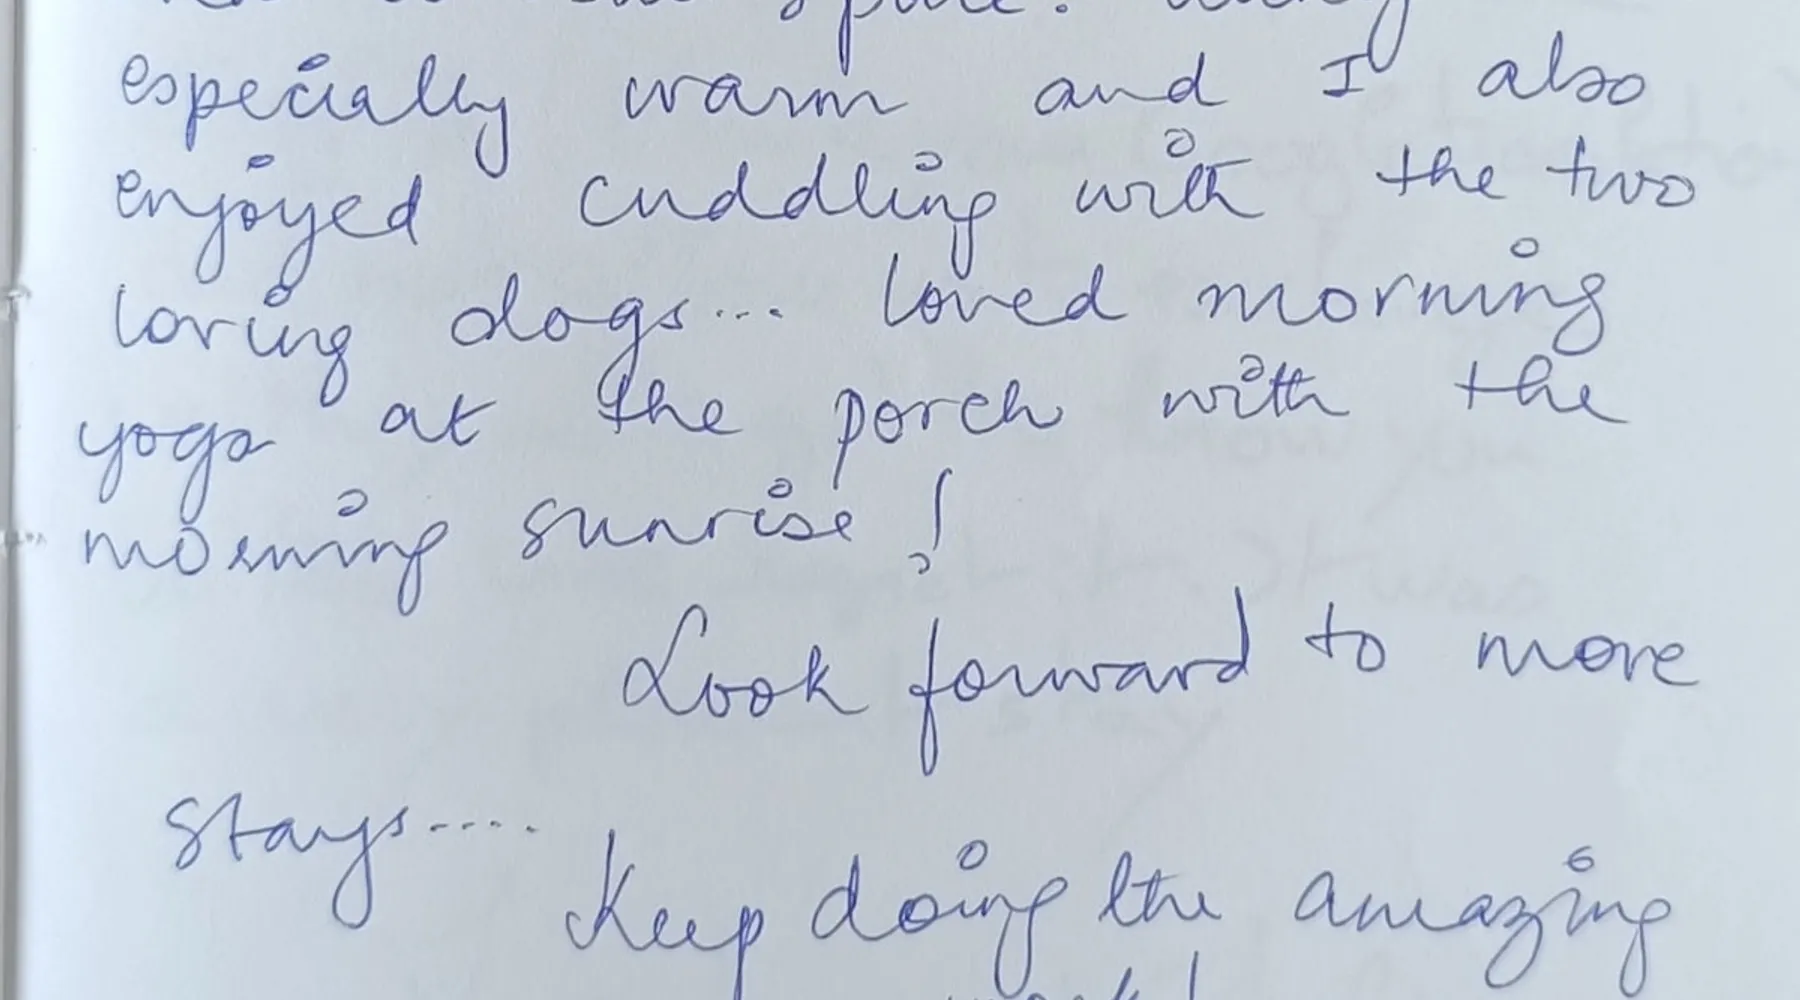 especially warm and I also
enjoyed cuddling with the two
loving dogs... loved morning
yoga at the porch with the
morning sunrise!
Look forward to more
stays....
Keep doing the amazing